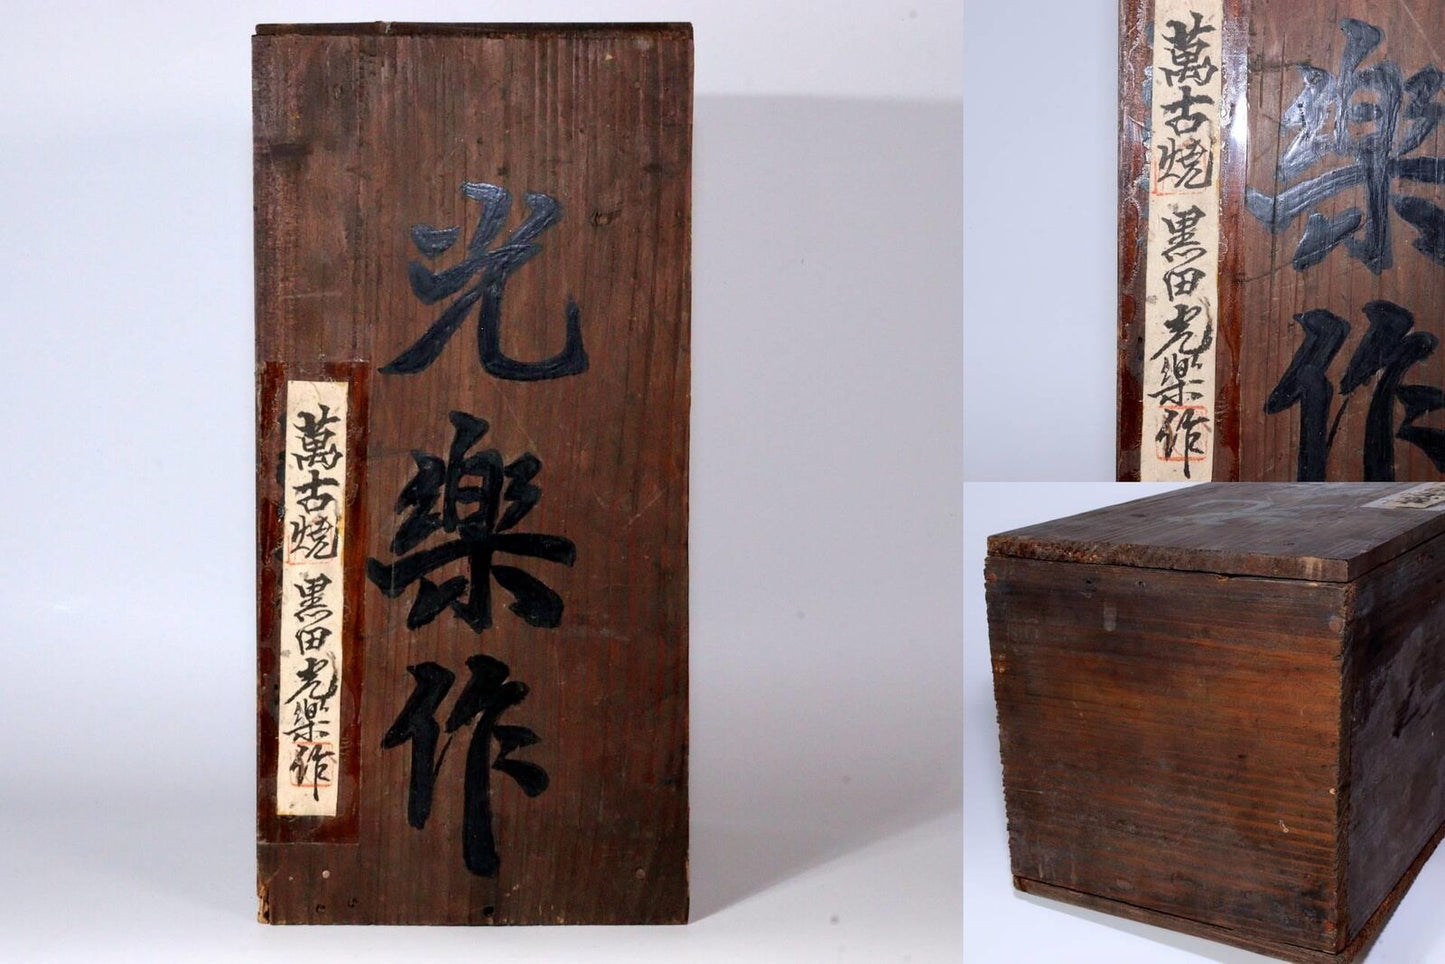 光樂作
萬古燒 黒田光樂作
萬古燒 黒田光樂作
樂作